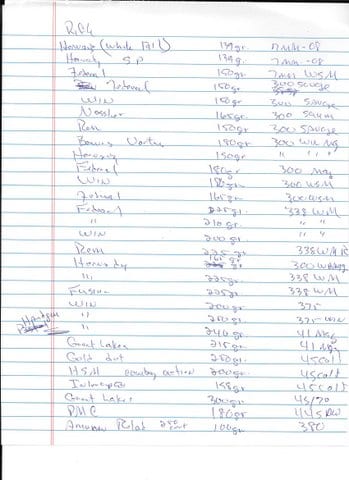 Rifle
Hornady (White Tail) 139gr 7mm-08
Hornady SP 139gr 7mm-08
Federal 150gr. 7mm WSM
Federal 150gr 300 Savage
WIN 150gr 300 Savage
Nosler 165gr. 300
Rem 150gr. 300 Savage
180gr 300 Win Mg
Hornady 150gr " " "
Federal 180gr 300 Mag
WIN 180gr 300 WSM
Federal 165gr 300 WSM
Federal 225gr. 338 WM
" 210gr. " "
WIN 200gr.
Rem 225gr. 338 WM
Hornady 165gr 300
" 225gr. 338 WM
Fusion 225gr. 338 WM
WIN 200gr 375
" 250gr. 375 Win
Handgun 240gr 41 Mag
Great Lakes 215gr 41 Mag
Gold Dot 250gr. 45 Colt
HSM cowboy action 200gr. 45 Colt
158gr 45 Colt
Great Lakes 300gr 45/70
PMC 180gr
American 100gr 380